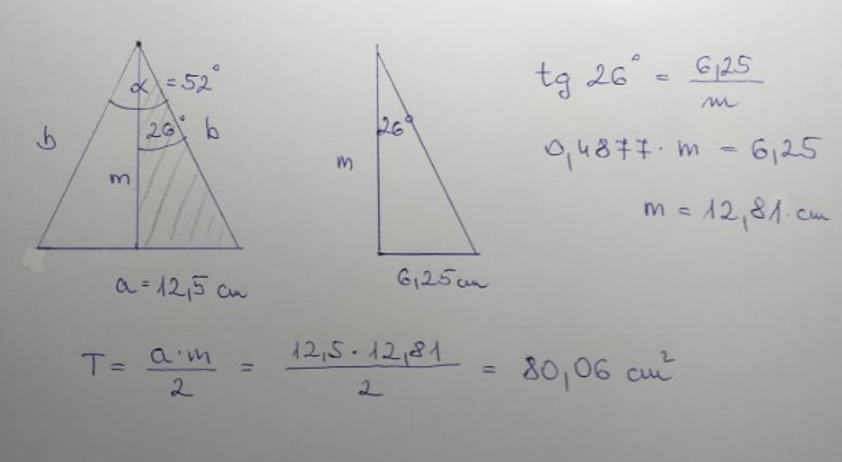 α = 52°
26°
b
b
m
a = 12,5 cm
26°
m
6,25 cm
tg 26° = 6,25 / m
0,4877 · m = 6,25
m = 12,81 cm
T = a·m / 2 = 12,5 · 12,81 / 2 = 80,06 cm²